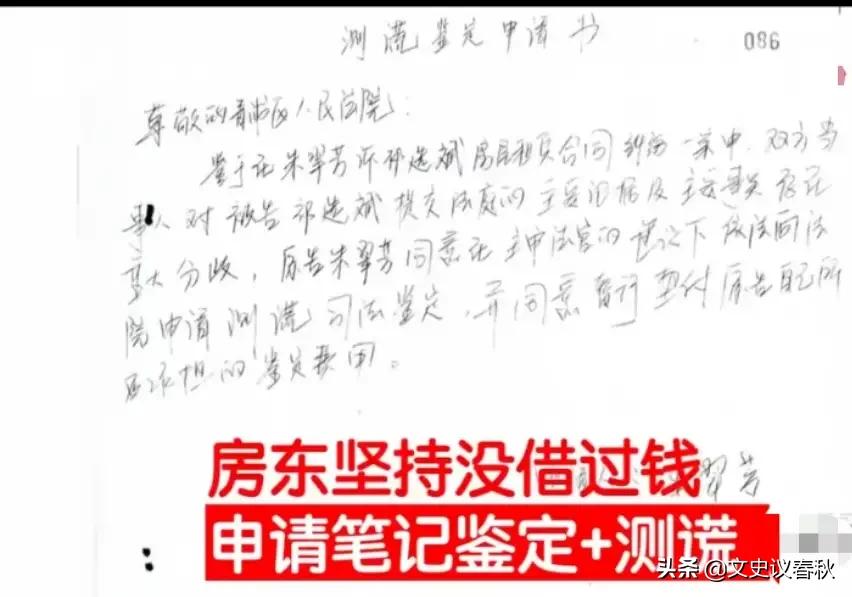 测谎鉴定申请书
086
尊敬的青浦区人民法院:
鉴于在朱翠芳诉祁选斌房屋租赁合同纠纷一案中,双方当
事人对被告祁选斌提交法庭的主要证据及主要事实存在
重大分歧,原告朱翠芳同意在主审法官的建议之下依法向法
院申请测谎司法鉴定,并同意暂行垫付原告
承担的鉴定费用。
房东坚持没借过钱
翠芳
申请笔记鉴定+测谎
头条 @文史议春秋